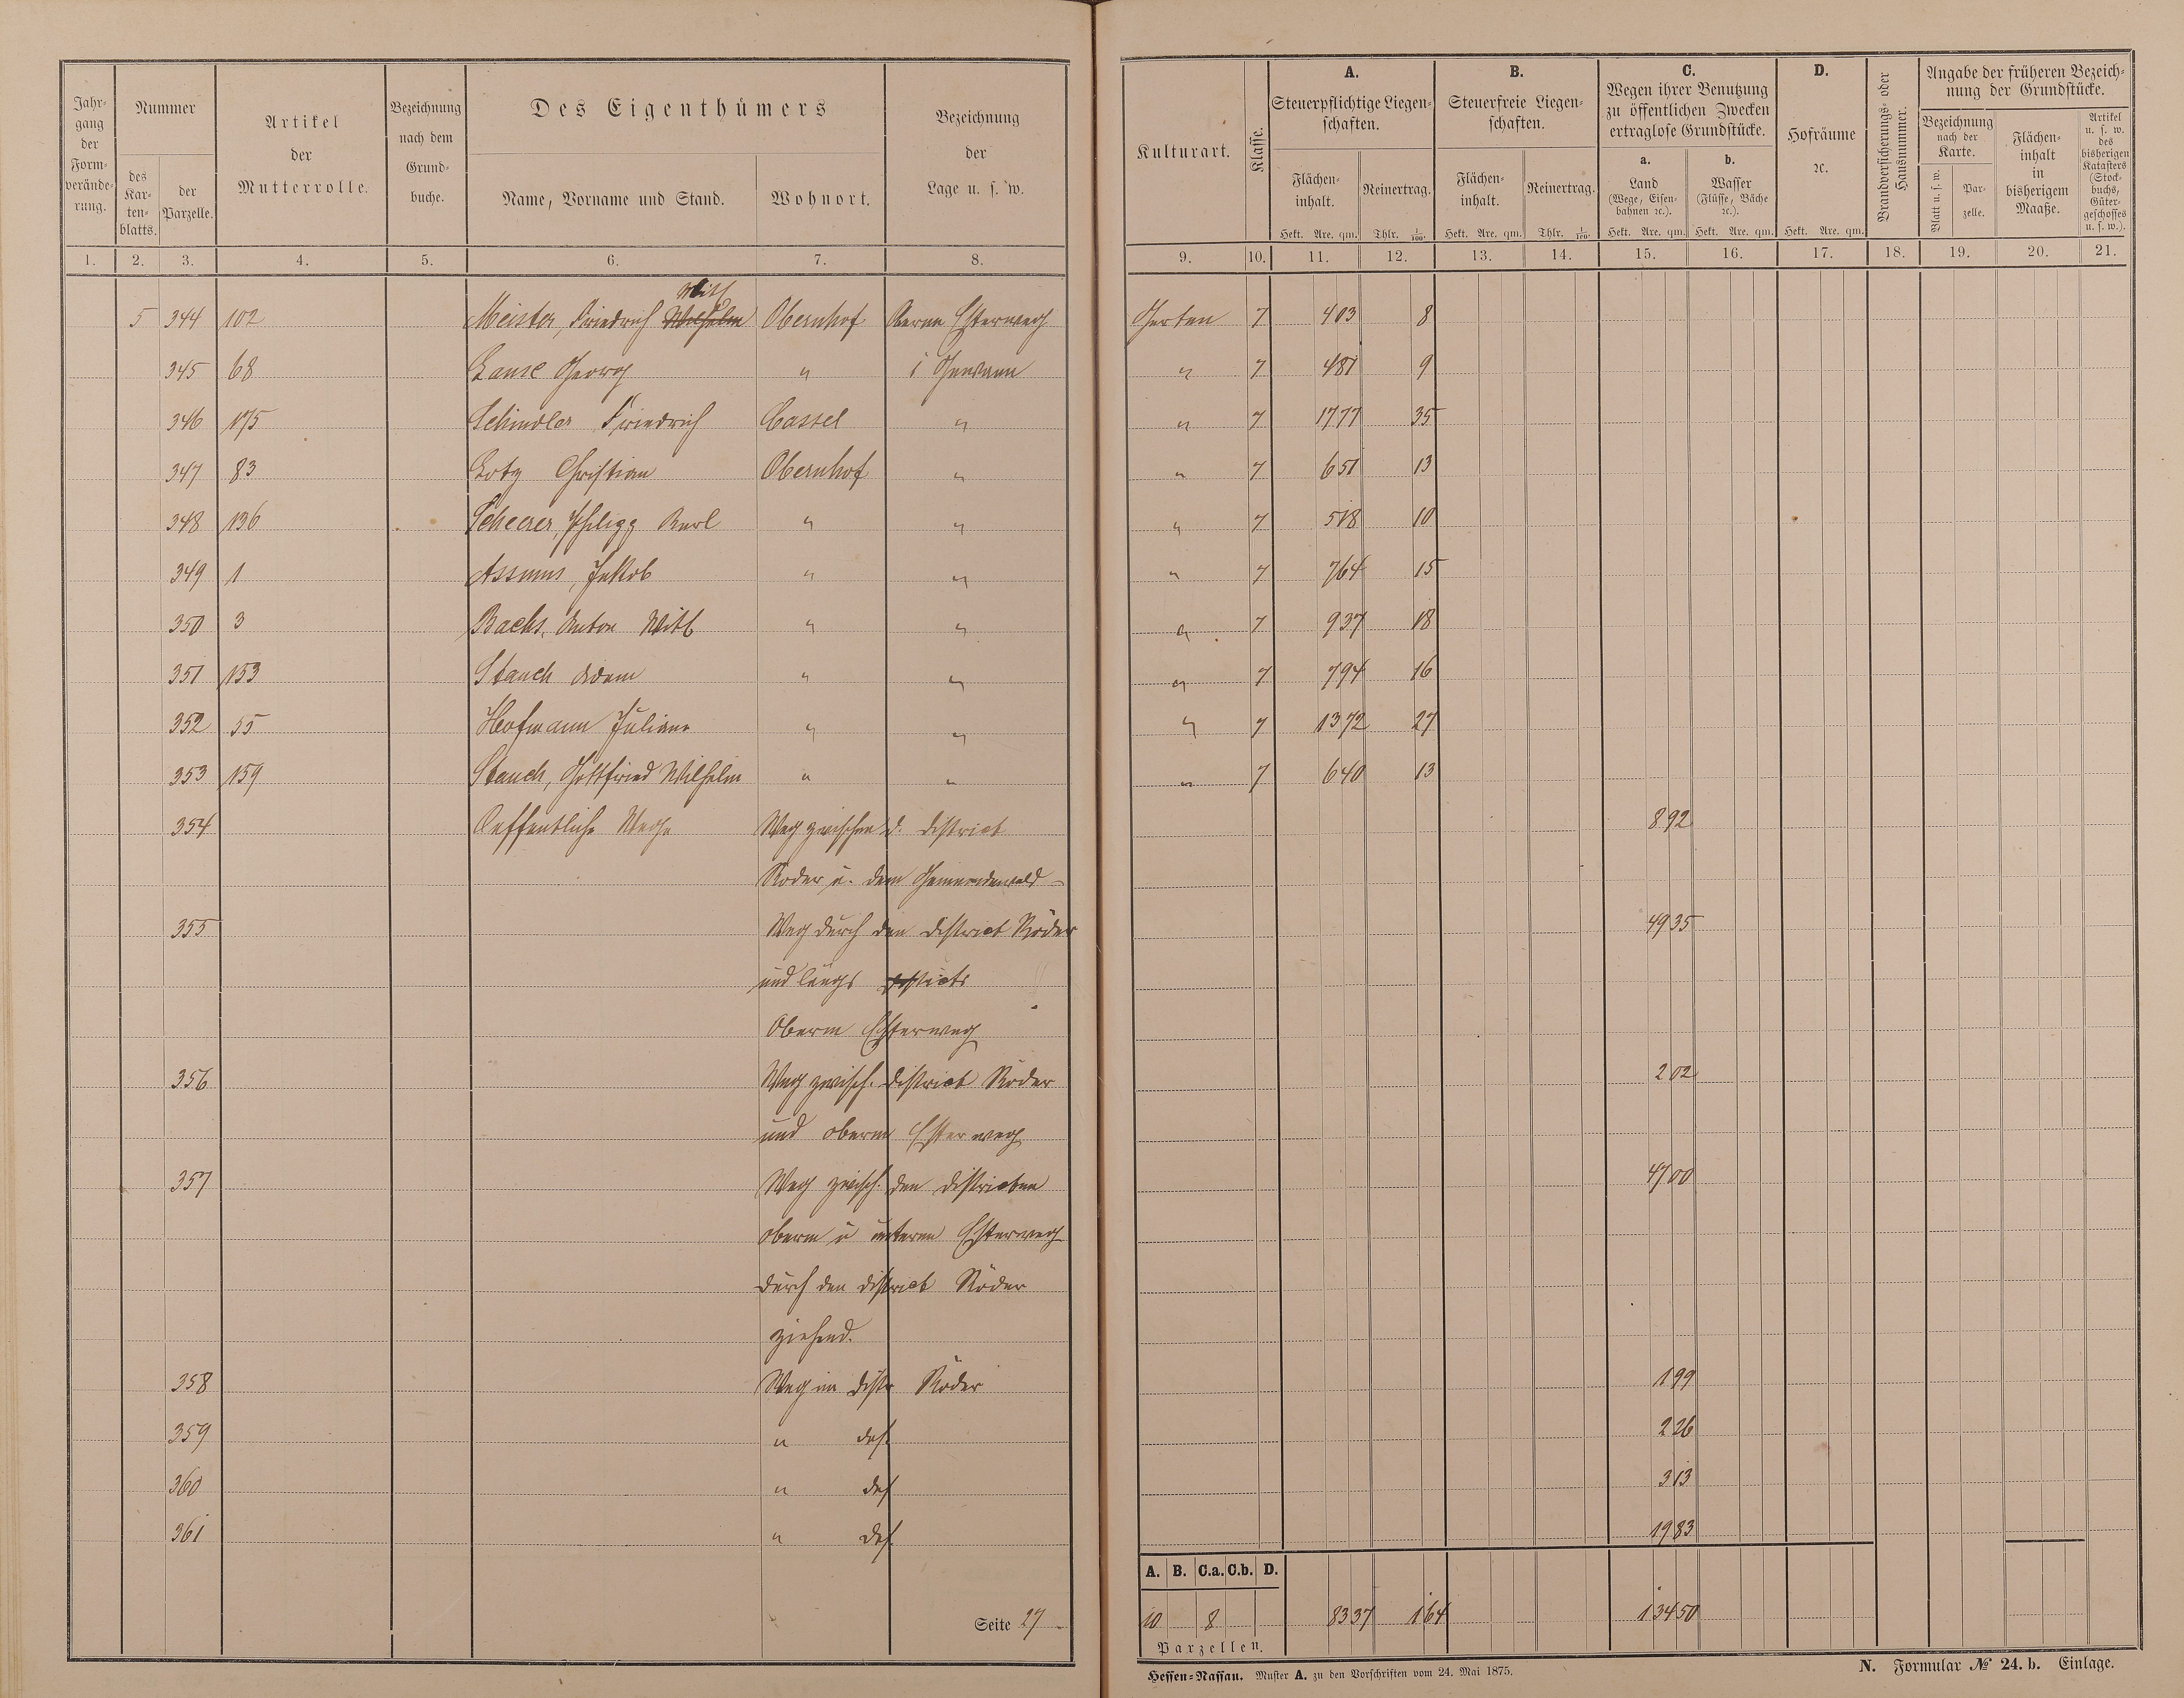 Jahrgang der Formveränderung.
Nummer
des Kartenblatts.
der Parzelle.
Artikel der Mutterrolle.
Bezeichnung nach dem Grundbuche.
Des Eigenthümers
Name, Vorname und Stand.
Wohnort.
Bezeichnung der Lage u. s. w.
Kulturart.
Klasse.
A.
Steuerpflichtige Liegenschaften.
Flächeninhalt.
Hekt. Are. qm.
Reinertrag.
Thlr. 1/100.
B.
Steuerfreie Liegenschaften.
Flächeninhalt.
Hekt. Are. qm.
Reinertrag.
Thlr. 1/100.
C.
Wegen ihrer Benutzung zu öffentlichen Zwecken ertraglose Grundstücke.
a. Land (Wege, Eisenbahnen ꝛc.).
Hekt. Are. qm.
b. Wasser (Flüsse, Bäche ꝛc.).
Hekt. Are. qm.
D.
Hofräume ꝛc.
Hekt. Are. qm.
Brandversicherungs- oder Hausnummer.
Angabe der früheren Bezeichnung der Grundstücke.
Bezeichnung nach der Karte.
Blatt u. s. w.
Parzelle.
Flächeninhalt in bisherigem Maaße.
Artikel u. s. w. des bisherigen Katasters (Stockbuchs, Gütergeschosses u. s. w.).
1. 2. 3. 4. 5. 6. 7. 8. 9. 10. 11. 12. 13. 14. 15. 16. 17. 18. 19. 20. 21.
Witl
5 344 102 Meister, Friedrich Wilhelm Obernhof Oberm Esterweg Garten 7 403 8
345 68 Lause Georg " i Gewann " 7 481 9
346 175 Schindler Friedrich Cassel " " 7 1777 35
347 83 Lotz Christian Obernhof " " 7 651 13
348 136 Scheerer, Philipp Karl " " " 7 518 10
349 1 Assmus, Jakob " " " 7 764 15
350 3 Bachs, Anton Witl " " " 7 937 18
351 153 Stauch Adam " " " 7 794 16
352 55 Hofmann Juliane " " " 7 1372 27
353 159 Stauch, Gottfried Wilhelm " " " 7 640 13
354 Oeffentliche Wege Weg zwischen d. District 892
Röder u. dem Gemeindewald
355 Weg durch den District Röder 4935
und längs Districts
Oberm Esterweg
356 Weg zwisch. District Röder 202
und oberm Esterweg
357 Weg zwisch. den Districten 4700
oberm u unterm Esterweg
durch den District Röder
ziehend.
358 Weg im Distr Röder 199
359 " das. 226
360 " das 313
361 " das. 1983
A. B. C.a. C.b. D.
10 8 8337 164 13450
Parzellen.
Seite 27
Hessen-Nassau. Muster A. zu den Vorschriften vom 24. Mai 1875.
N. Formular № 24. b. Einlage.